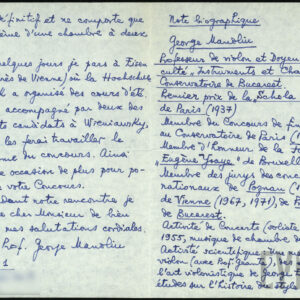 définitif et ne comporte que
d'une chambre à deux
quelques jours je pars à Eisen
près de Vienne) où la Hochschu
a organisé des cours d'été
accompagné par deux des
candidats à Wieniawsky,
les ferai travailler le
du concours. Ainsi
occasion de plus pour
votre Concours.
notre rencontre je
cher Monsieur de bien
mes salutations cordiales.
Prof. George Manoliu
1
Note biographique
George Manoliu
Professeur de violon et Doyen
culté "Instruments et
Conservatoire de Bucarest.
Premier prix de la Schola
de Paris (1937)
Membre du Concours de fi
au Conservatoire de Paris
Membre d'Honneur de la
Eugène Ysaye" de Bruxelle
Membre des jurys des conc
nationaux de Poznan
de Vienne (1967, 1971), de
de Bucarest.
Activité de Concerts (soliste
1955, musique de chambre
Activité scientifique
violon (avec Prof.
l'art violonistique de George
études sur l'histoire des styles